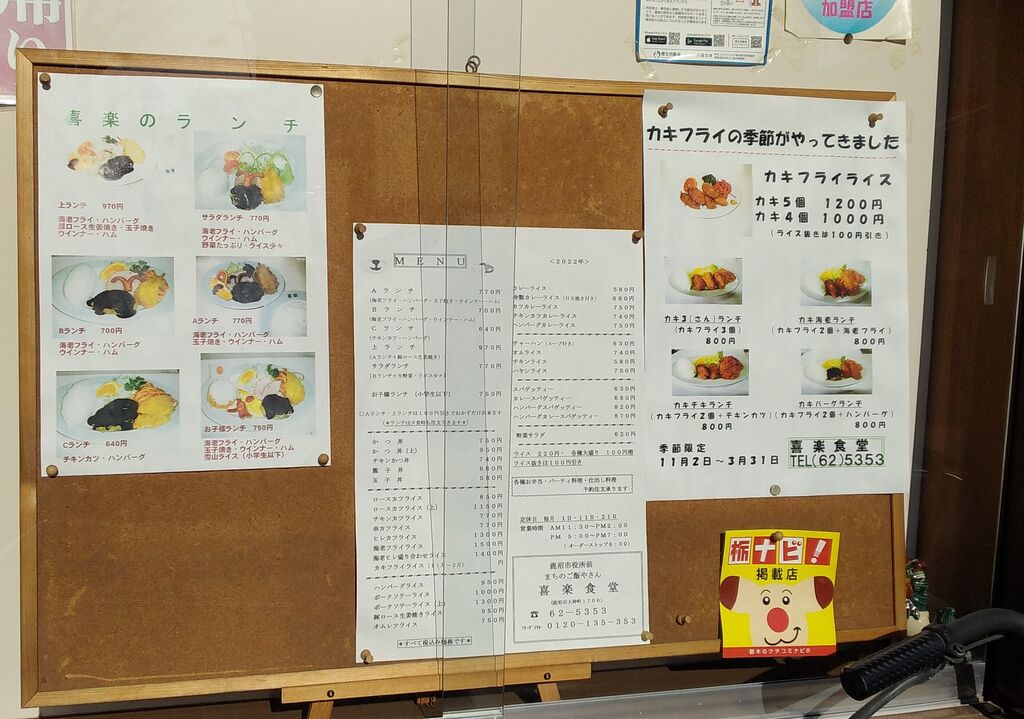 加盟店
喜楽のランチ
上ランチ 970円
海老フライ・ハンバーグ
豚ロース生姜焼き・玉子焼き
ウインナー・ハム
サラダランチ 770円
海老フライ・ハンバーグ
ウインナー・ハム
野菜たっぷり・ライス少々
Bランチ 700円
海老フライ・ハンバーグ
ウインナー・ハム
Aランチ 770円
海老フライ・ハンバーグ
玉子焼き・ウインナー・ハム
Cランチ 640円
チキンカツ・ハンバーグ
お子様ランチ 750円
海老フライ・ハンバーグ
玉子焼き・ウインナー・ハム
雪山ライス(小学生以下)
MENU
Aランチ 770円
(海老フライ・ハンバーグ・玉子焼き・ウインナー・ハム)
Bランチ 700円
(海老フライ・ハンバーグ・ウインナー・ハム)
Cランチ 640円
(チキンカツ・ハンバーグ)
上ランチ 970円
(Aランチ+豚ロース生姜焼き)
サラダランチ 770円
(Bランチ+生野菜・ライス少々)
お子様ランチ (小学生以下) 750円
○Aランチ・上ランチは100円引きでおかずだけ出来ます
*ランチは夕食時も注文できます*
かつ丼 750円
かつ丼(上) 950円
チキンかつ丼 740円
親子丼 680円
玉子丼 580円
ロースカツライス 850円
ロースカツライス(上) 1150円
チキンカツライス 770円
串カツライス 770円
ヒレカツライス 1300円
海老フライライス 1500円
海老ヒレ盛り合わせライス 1400円
カキフライライス(11月~3月) 円
ハンバーグライス 950円
ポークソテーライス 1000円
ポークソテーライス(上) 1300円
豚ロース生姜焼きライス 950円
オムレツライス 750円
*すべて税込み価格です*
<2022年>
カレーライス 580円
特製カレーライス(目玉焼き付き) 680円
カツカレーライス 750円
チキンカツカレーライス 740円
ハンバーグカレーライス 750円
チャーハン(スープ付き) 630円
オムライス 740円
チキンライス 580円
ハヤシライス 750円
スパゲッティー 630円
カレースパゲッティー 680円
ハンバーグスパゲッティー 820円
ハンバーグカレースパゲッティー 870円
野菜サラダ 620円
ライス 220円・各種大盛り 100円増
ライス抜きは100円引き
各種お弁当・パーティ料理・仕出し料理
予約注文承ります
定休日 毎月 1日・11日・21日
営業時間 AM11:30~PM2:00
PM 5:00~PM7:00
(オーダーストップ6:30)
鹿沼市役所前
まちのご飯やさん
喜楽食堂
(鹿沼市天神町1706)
☎ 62-5353
フリーダイヤル 0120-135-353
カキフライの季節がやってきました
カキフライライス
カキ5個 1200円
カキ4個 1000円
(ライス抜きは100円引き)
カキ3(さん)ランチ
(カキフライ3個)
800円
カキ海老ランチ
(カキフライ2個+海老フライ)
800円
カキチキランチ
(カキフライ2個+チキンカツ)
800円
カキバーグランチ
(カキフライ2個+ハンバーグ)
800円
季節限定
11月2日~3月31日
喜楽食堂
TEL(62)5353
栃ナビ!
掲載店
栃木のクチコミナビ®